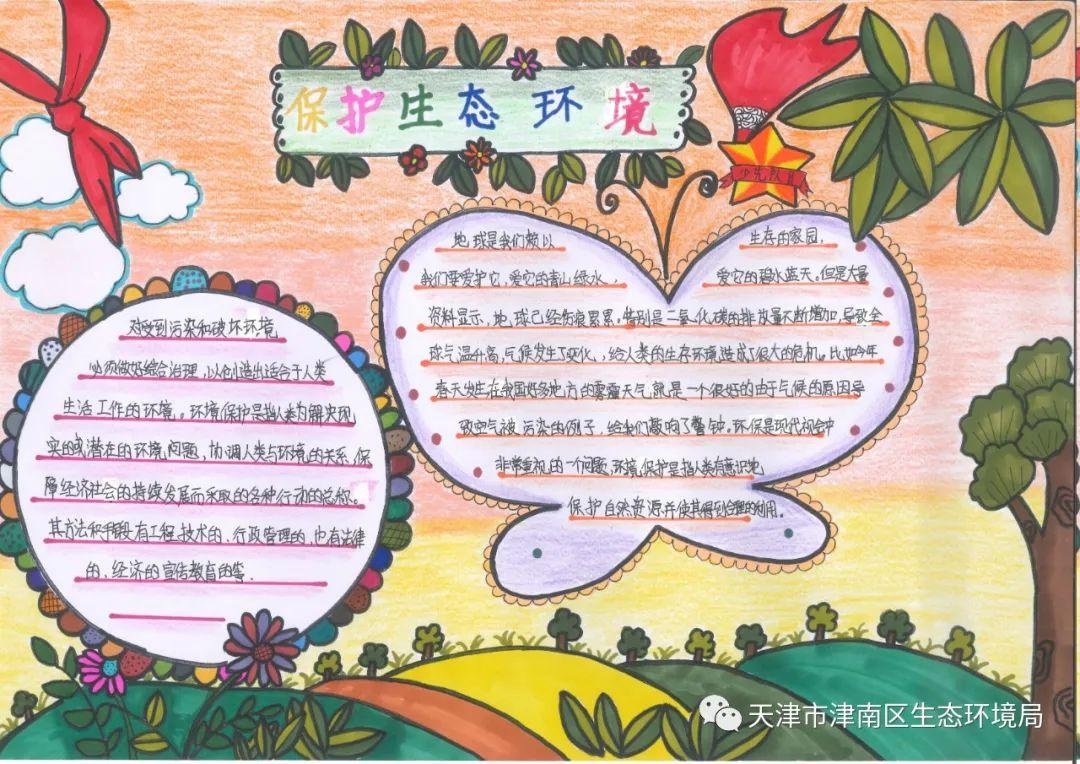 保护生态环境
少先队員
地球是我们赖以
生存的家园,
我们要爱护它,爱它的青山绿水,
爱它的碧水蓝天。但是大量
资料显示,地球已经伤痕累累,特别是二氧化碳的排放量不断增加,导致全
球气温升高,气候发生了变化,给人类的生存环境造成了很大的危机。比如今年
春天发生在我国好多地方的雾霾天气,就是一个很好的由于气候的原因导
致空气被污染的例子,给我们敲响了警钟。环保是现代社会中
非常重视的一个问题,环境保护是指人类有意识地
保护自然资源并使其得到合理的利用。
对受到污染和破坏环境
必须做好综合治理,以创造出适合于人类
生活工作的环境。环境保护是指人类为解决现
实的或潜在的环境问题,协调人类与环境的关系,保
障经济社会的持续发展而采取的各种行动的总称。
其方法和手段有工程技术的,行政管理的,也有法律
的,经济的宣传教育的等.
天津市津南区生态环境局